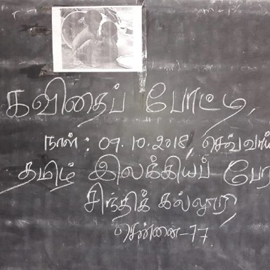 கவிதைப் போட்டி
நாள் : 09.10.2018, செவ்வாய்
தமிழ் இலக்கியப் பேர
சிந்திக் கல்லூரி
சென்னை-77.